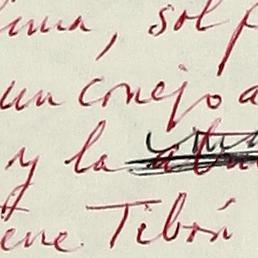 ima, sol f
un conejo a
y la
iene Tibón